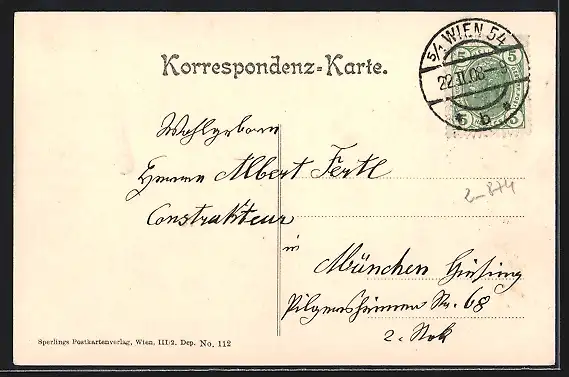 Korrespondenz=Karte.
5/1 WIEN 54
22.II.08
* b *
5 5
5 5
Wohlgeborn
Herrn Albert Fertl
Constrakteur
in
München Giesing
Pilgersheimer Str. 68
2. Stok
2-874
Sperlings Postkartenverlag, Wien, III/2. Dep. No. 112